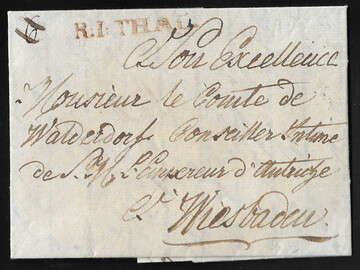 6
R.I: THAL
a Son Excellence
Monsieur le Comte de
Walderdorf Conseiller Intime
de S. M. l'Empereur d'Autriche
à Wiesbaden.